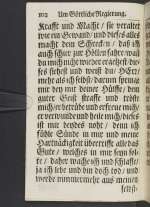 102 Um Göttliche Regierung.
Krafft und Macht / sie veraltet
wie ein Gewand / und dieses alles
macht dein Schrecken / daß ich
auch schier zur Höllen fahre wo
du mich nicht wieder erhebest die-
ses siehest und weist du / HErr/
mehr als ich selbst / darum spring
mir bey mit deiner Hülffe / dein
guter Geist krafte und tröste
mich / er betrübe und erfreue mich/
er verwunde und heile mich / dieses
ist mir beydes noht / denn ich
fühle Sünde in mir und meine
Hartnäckigkeit übertrifft alle das
Gute / welches in mir seyn sol-
te / daher wache ich und schlaffe/
ja ich lebe und bin doch tod / und
werde nimmermehr aus meinen
selbst-